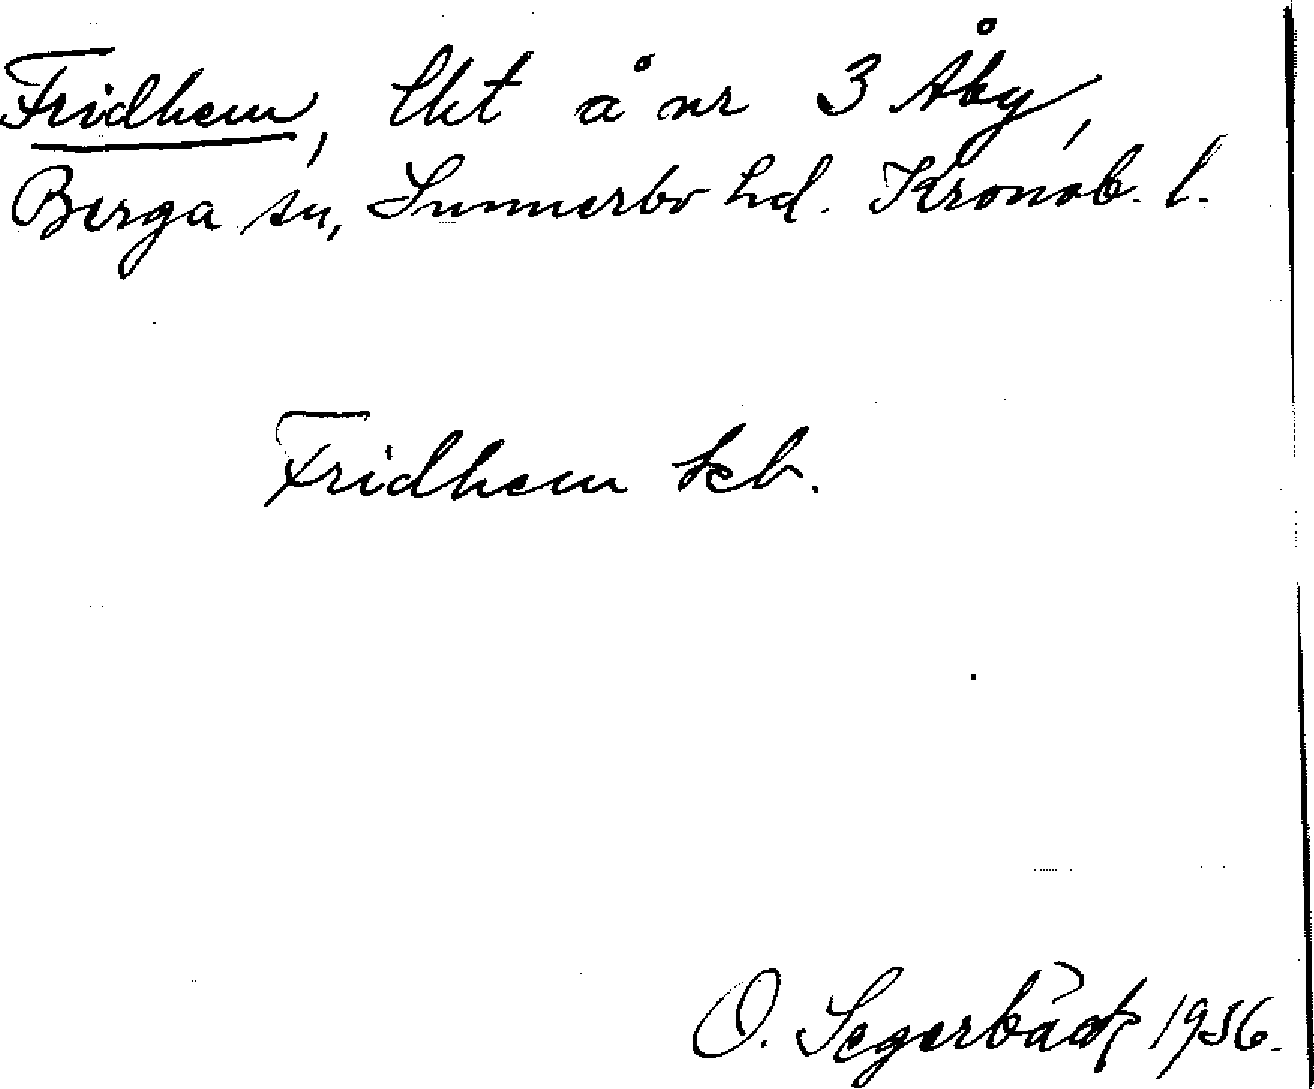 Fridhem, lht å nr 3 Åby,
Berga sn, Sunnerbo hd. Kronob. l.
Fridhem
O. Segerbäck 1956.